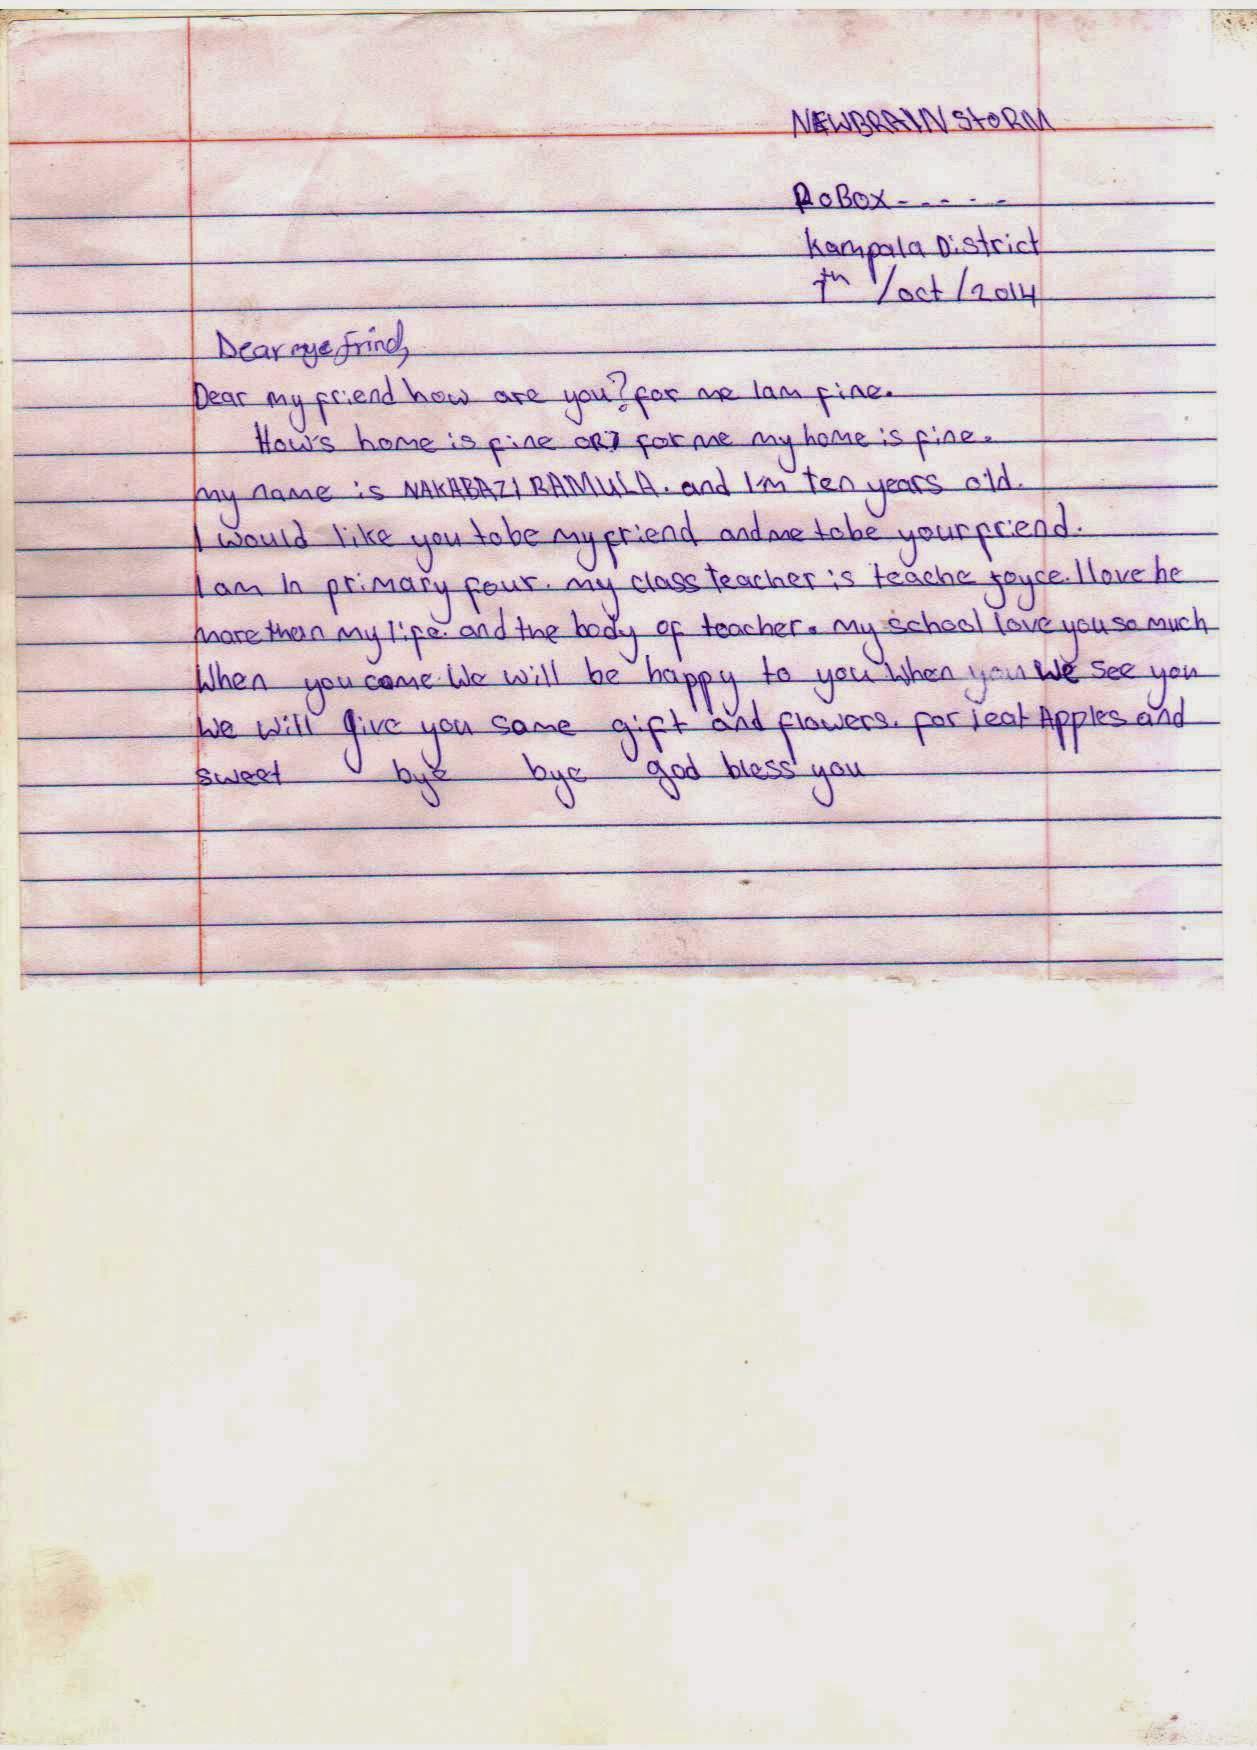 NEWBRAIN StORM
PoBox-----
Kampala District
7th /oct/2014
Dear mye frind,
Dear my friend how are you? for me Iam fine.
How's home is fine OR? for me my home is fine.
my name is NAKABAZI RAMULA. and I'm ten years old.
I would like you tobe my friend and me tobe your friend.
I am In primary four. my class teacher is teache joyce. Ilove he
more than my life. and the body of teacher. my school love you so much
When you come We will be happy to you When you We see you
We will give you some gift and flowers. for ieat Apples and
sweet bye bye god bless you